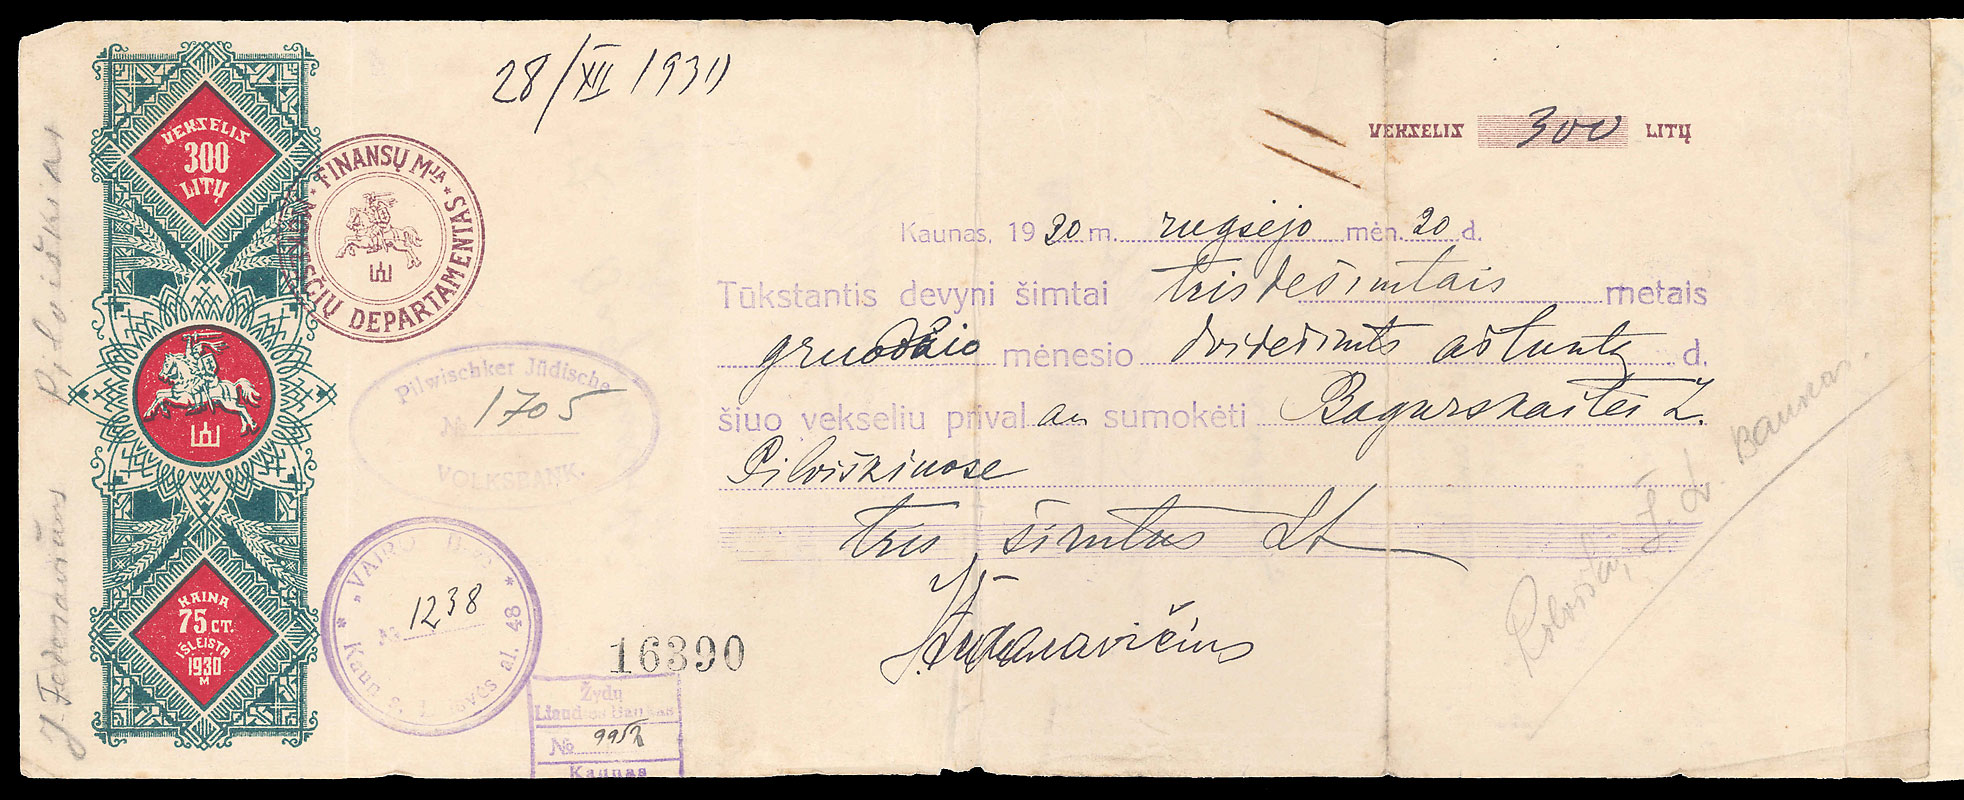 VEKSELIS
300
LITŲ
KAINA
75 CT.
IŠLEISTA
1930
M
FINANSŲ MJA
MOKESČIŲ DEPARTAMENTAS
28/XII 1930
VEKSELIS 300 LITŲ
Kaunas, 1930 m. rugsėjo mėn. 20 d.
Tūkstantis devyni šimtai trisdešimtais metais
gruodžio mėnesio dvidešimts aštuntą d.
šiuo vekseliu prival an sumokėti Bagurskaitei Z.
Pilviškiuose
tris šimtus Lt
Pilwischker Jüdische
№ 1705
VOLKSBANK.
"VAIRO"
№ 1238
Kaun
al. 48
16390
Žydų
Liaudies Bankas
№ 9952
Kaunas
Pilviškiai